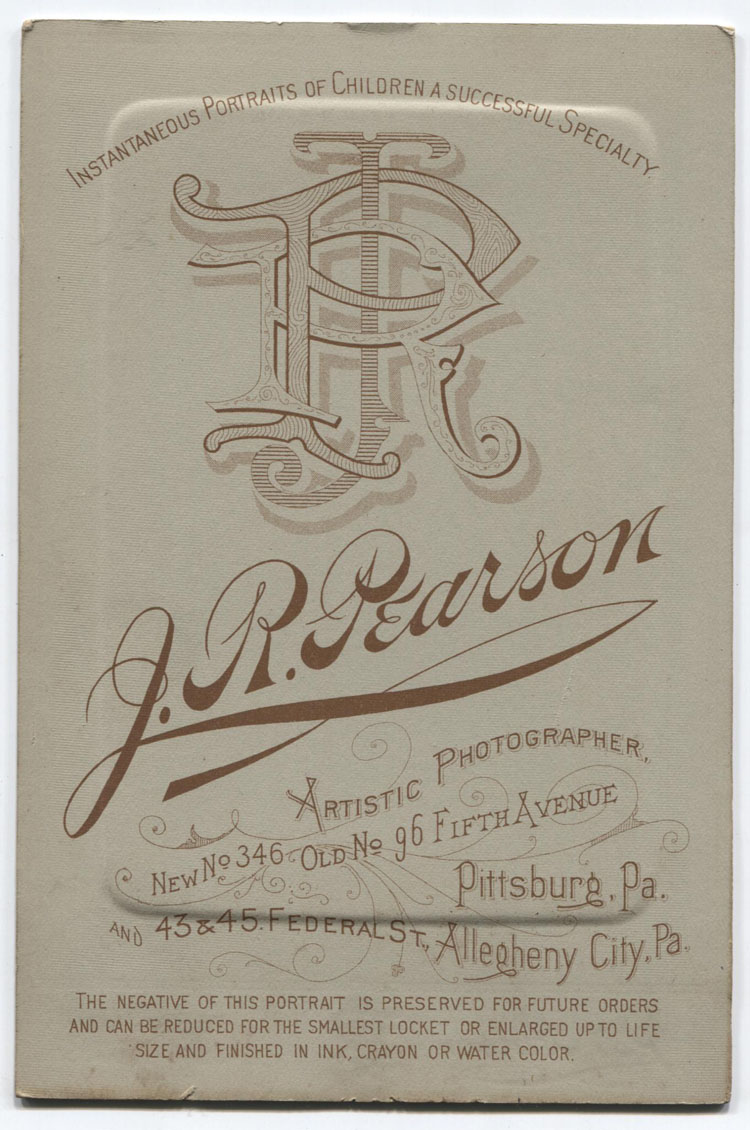 INSTANTANEOUS PORTRAITS OF CHILDREN A SUCCESSFUL SPECIALTY.
JRP
J. R. Pearson
ARTISTIC PHOTOGRAPHER,
NEW No 346 OLD No 96 FIFTH AVENUE
Pittsburg, Pa.
AND 43 & 45. FEDERAL ST., Allegheny City, Pa.
THE NEGATIVE OF THIS PORTRAIT IS PRESERVED FOR FUTURE ORDERS
AND CAN BE REDUCED FOR THE SMALLEST LOCKET OR ENLARGED UP TO LIFE
SIZE AND FINISHED IN INK, CRAYON OR WATER COLOR.